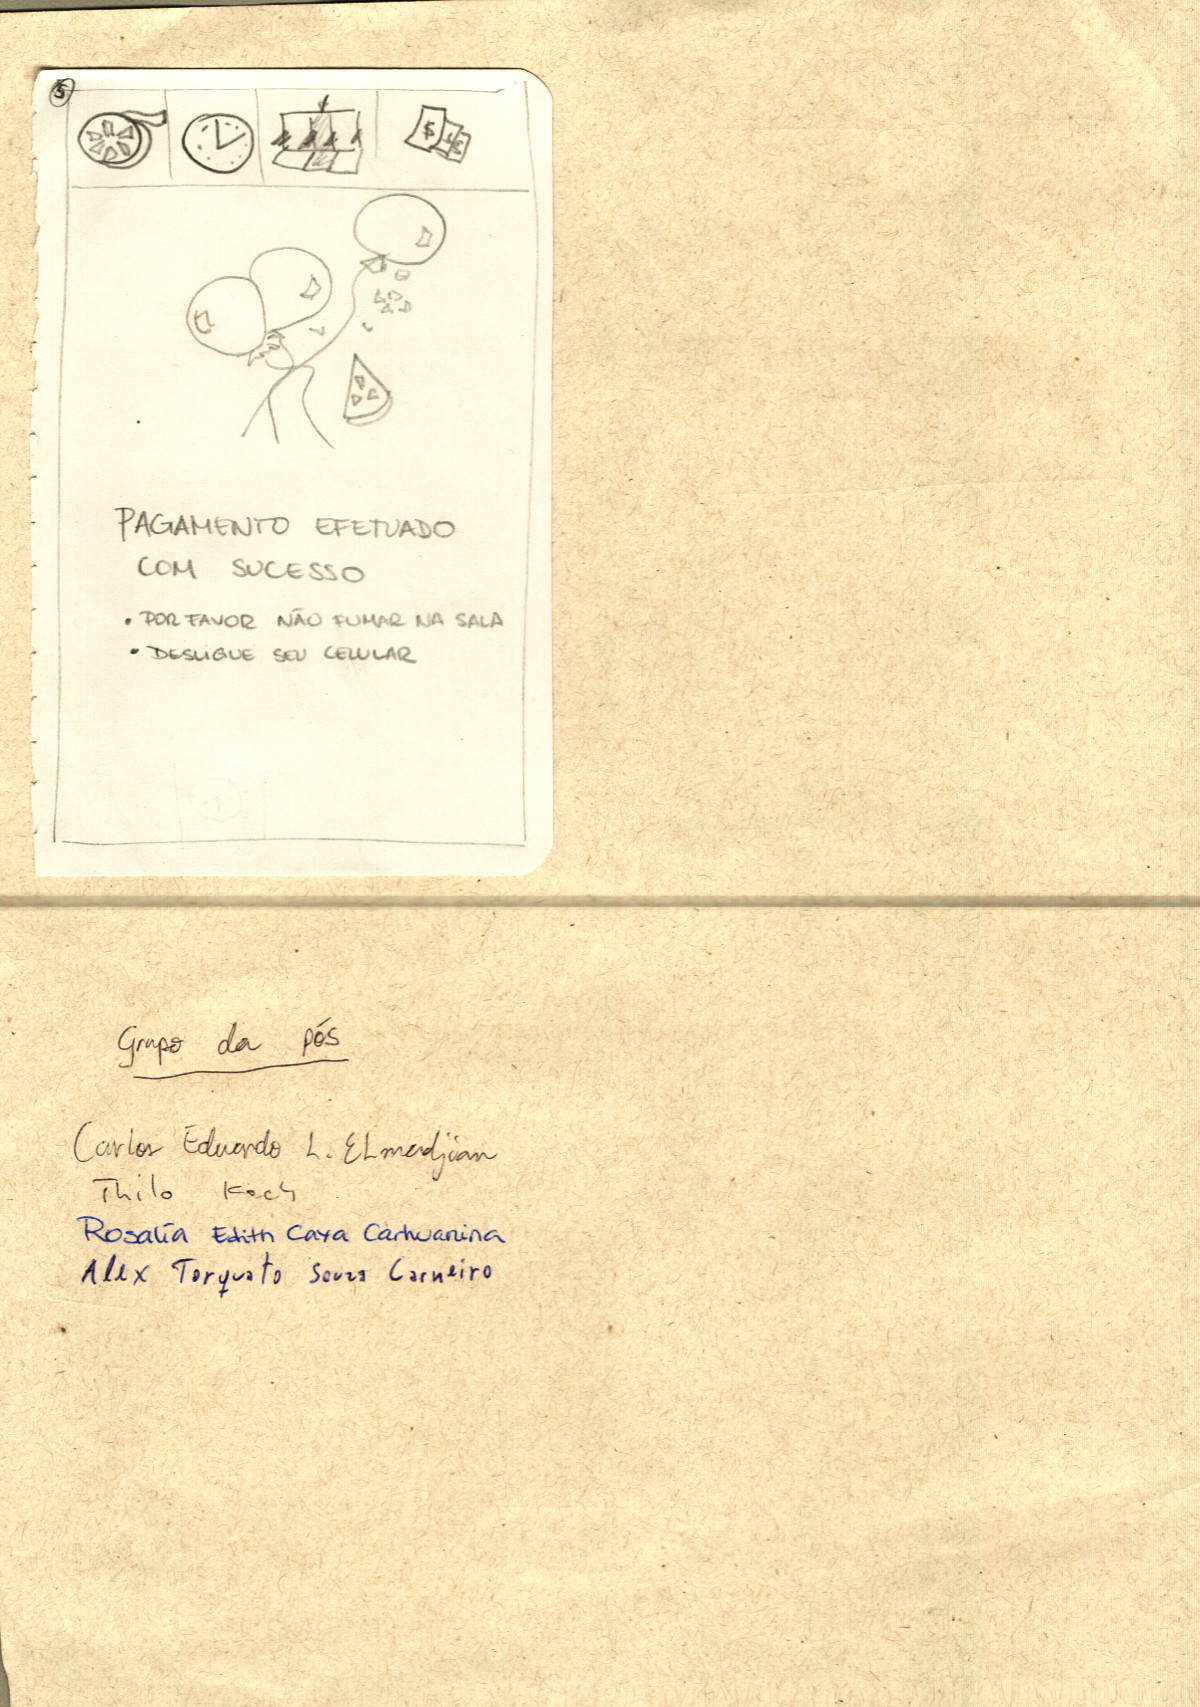 5
$
$
$
PAGAMENTO EFETUADO
COM SUCESSO
• POR FAVOR NÃO FUMAR NA SALA
• DESLIGUE SEU CELULAR
Grupo da pós
Carlos Eduardo L. ELmadjian
Thilo Koch
Rosalía Edith Caya Carhuanina
Alex Torquato Souza Carneiro